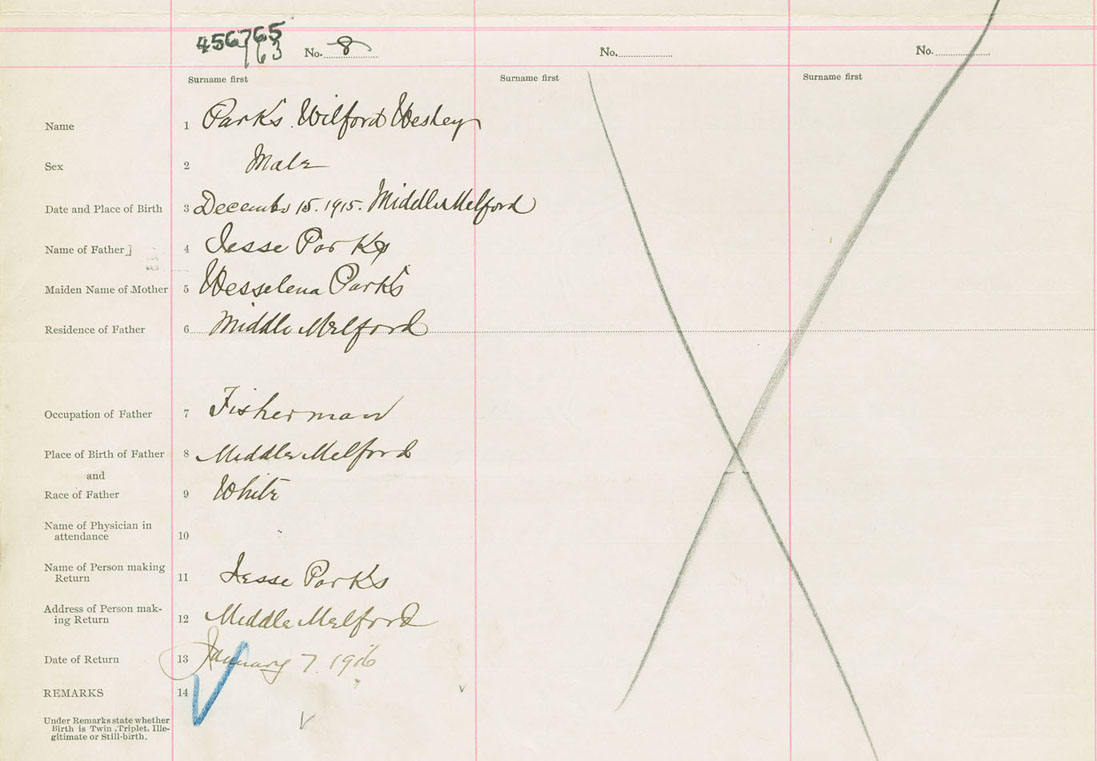 456765
63
No. 8 No. No.
Surname first Surname first Surname first
Name 1 Parks. Wilford Wesley
Sex 2 Male
Date and Place of Birth 3 December 15. 1915. Middle Melford
Name of Father 4 Jesse Parks
Maiden Name of Mother 5 Wesselena Parks
Residence of Father 6 Middle Melford
Occupation of Father 7 Fisherman
Place of Birth of Father 8 Middle Melford
and
Race of Father 9 White
Name of Physician in
attendance 10
Name of Person making
Return 11 Jesse Parks
Address of Person mak-
ing Return 12 Middle Melford
Date of Return 13 January 7. 1916
REMARKS 14
Under Remarks state whether
Birth is Twin, Triplet, Ille-
gitimate or Still-birth.